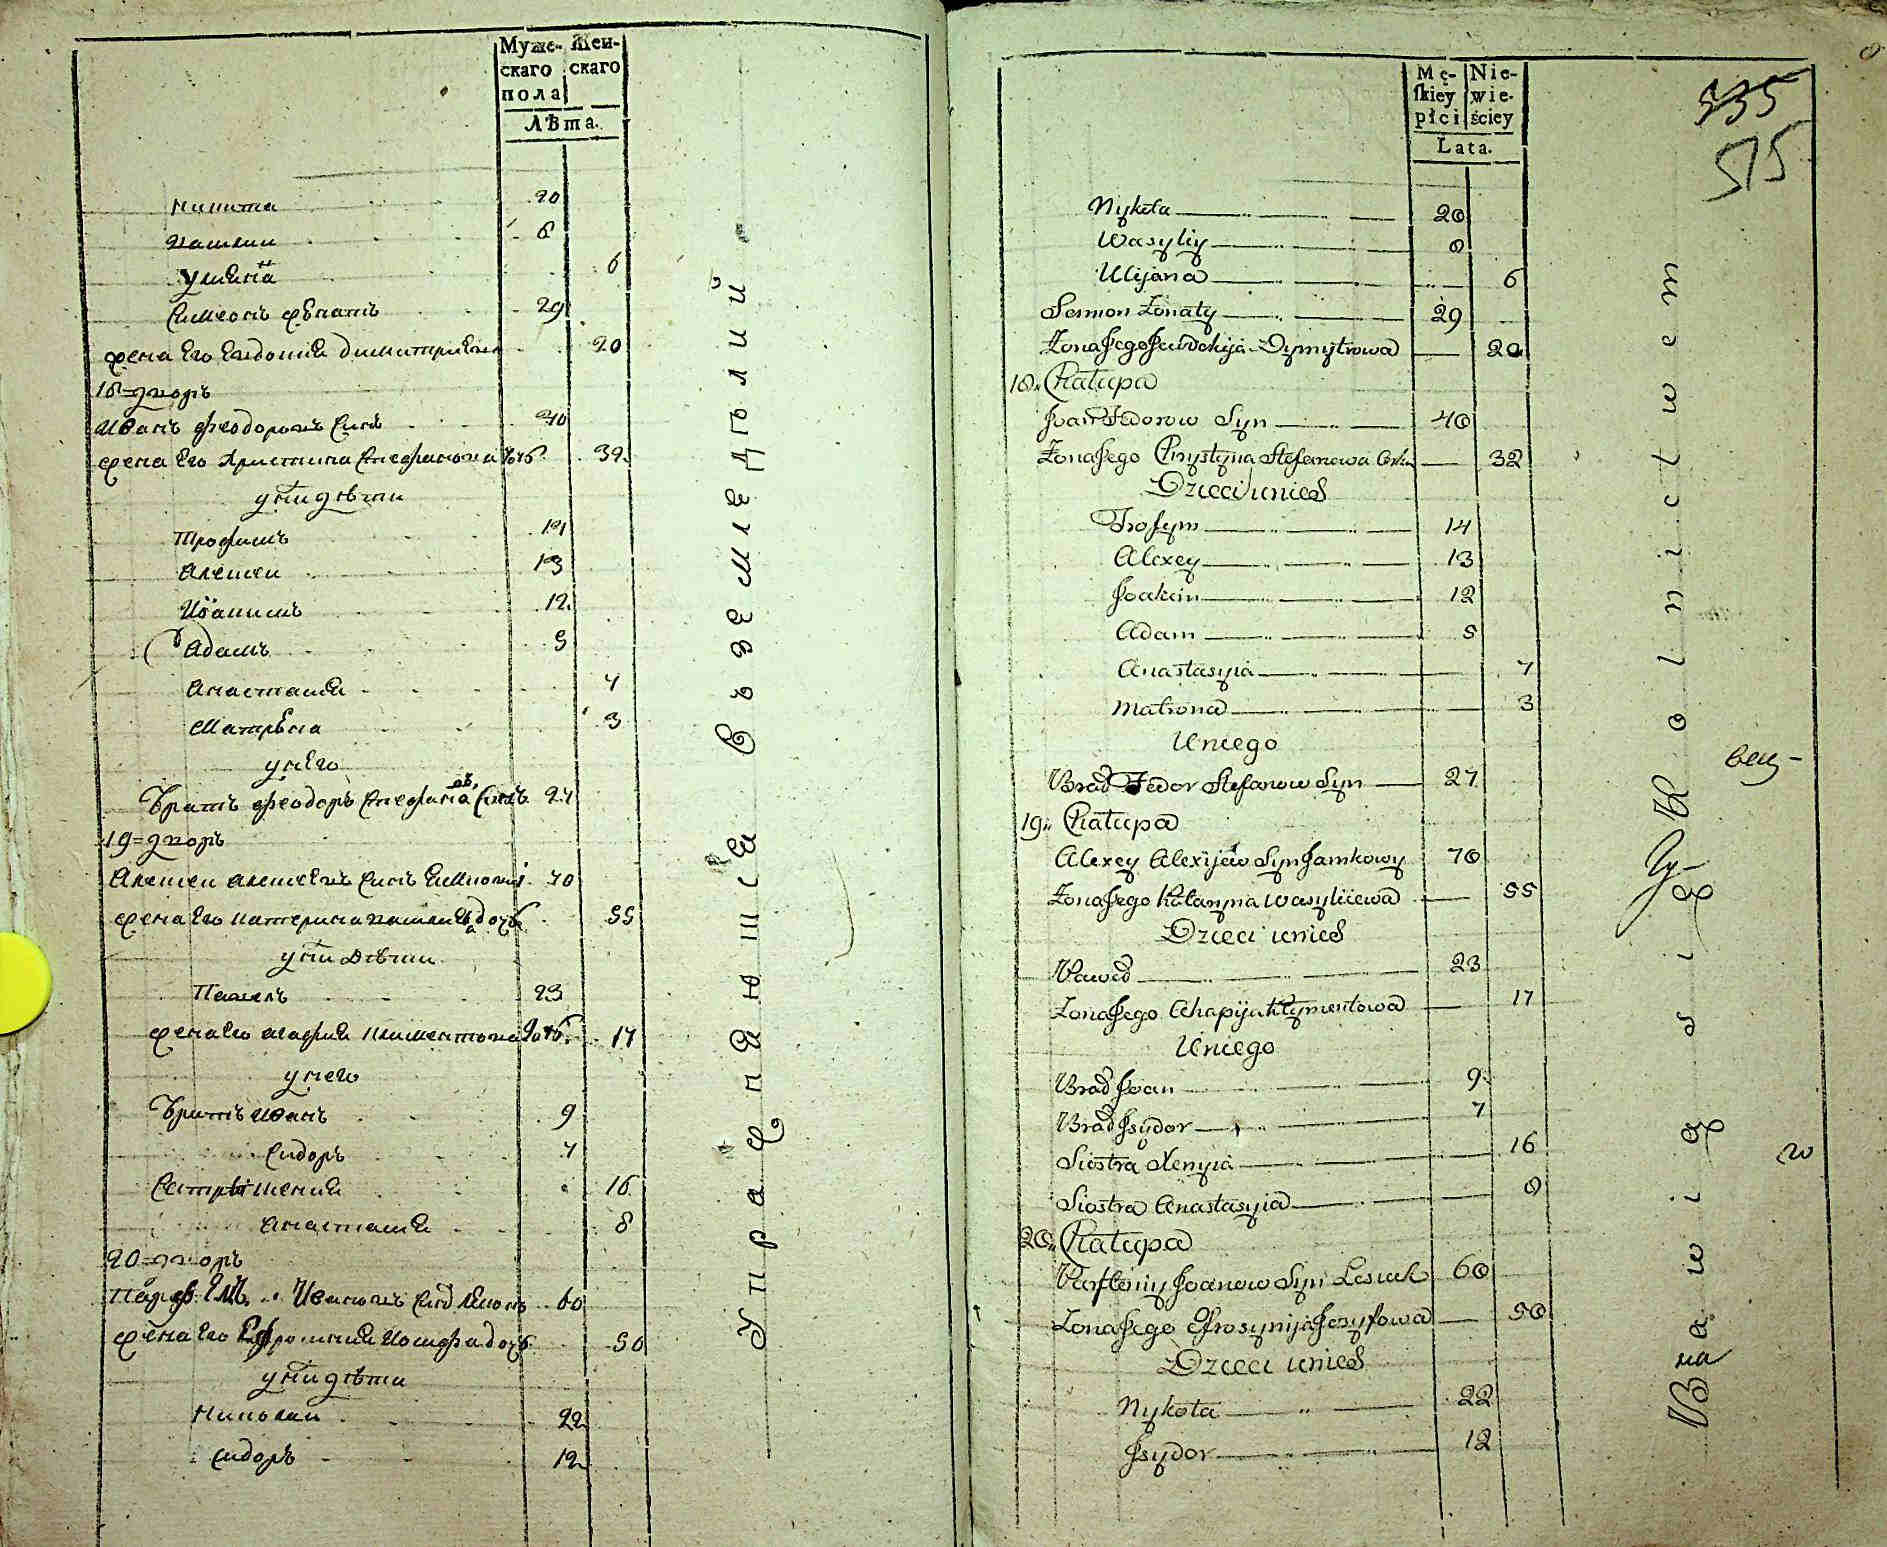 Муже- Жен-
скаго скаго
пола
Лѣта.
Никита 20
Василии 8
Улияна 6
Симеонъ женатъ 29
жена Его Евдокия димитриева 20
18=дворъ
Иванъ феодоровъ Синъ 40
жена Его Христина Стефанова дочь 32
у них дѣти
Трофимъ 14
Алексеи 13
Иоакимъ 12
Адамъ 5
Анастасия 7
Матрена 3
у него
Братъ феодоръ Стефановъ Синъ 27
19=дворъ
Алексеи алексеевъ Синъ 70
жена Его катерина василиева дочь 55
у них дѣти
Павелъ 23
жена Его агафия климентова дочь 17
у него
Братъ иванъ 9
Сидоръ 7
Сестра ксения 16
анастасия 8
20=дворъ
Ивановъ Синъ 60
жена Его Ефросиния иосифа дочь 50
у них дѣти
Николаи 22
Сидоръ 12
Упражнаюшся въ земледѣлии
Mę- Nie-
skiey wie-
płci ściey
Lata.
535
515
Nykoła 20
Wasyliy 8
Ulijana 6
Semion Żonaty 29
Żona Jego Jewdokija Dymytrowa 20
18. Chałupa
Jwan Fedorow Syn 40
Żona Jego Chrystyna Stefanowa Corka 32
Dzieci u nich
Trofym 14
Alexey 13
Joakim 12
Adam 5
Anastasyia 7
Matrona 3
U niego
Brat Fedor Stefanow Syn 27
19. Chałupa
Alexey Alexijew Syn Jamkowy 70
Żona Jego Katarzyna Wasyliiewa 55
Dzieci u nich
Paweł 23
Żona Jego Ahapija Klymentowa 17
U niego
Brat Jwan 9
Brat Jsydor 7
Siostra Xenyia 16
Siostra Anastasyia 8
20. Chałupa
Parfteniy Jwanow Syn Lesiuk 60
Żona Jego Efrosynija Jozyfowa 50
Dzieci u nich
Nykoła 22
Jsydor 12
Bawią się Rolnictwem